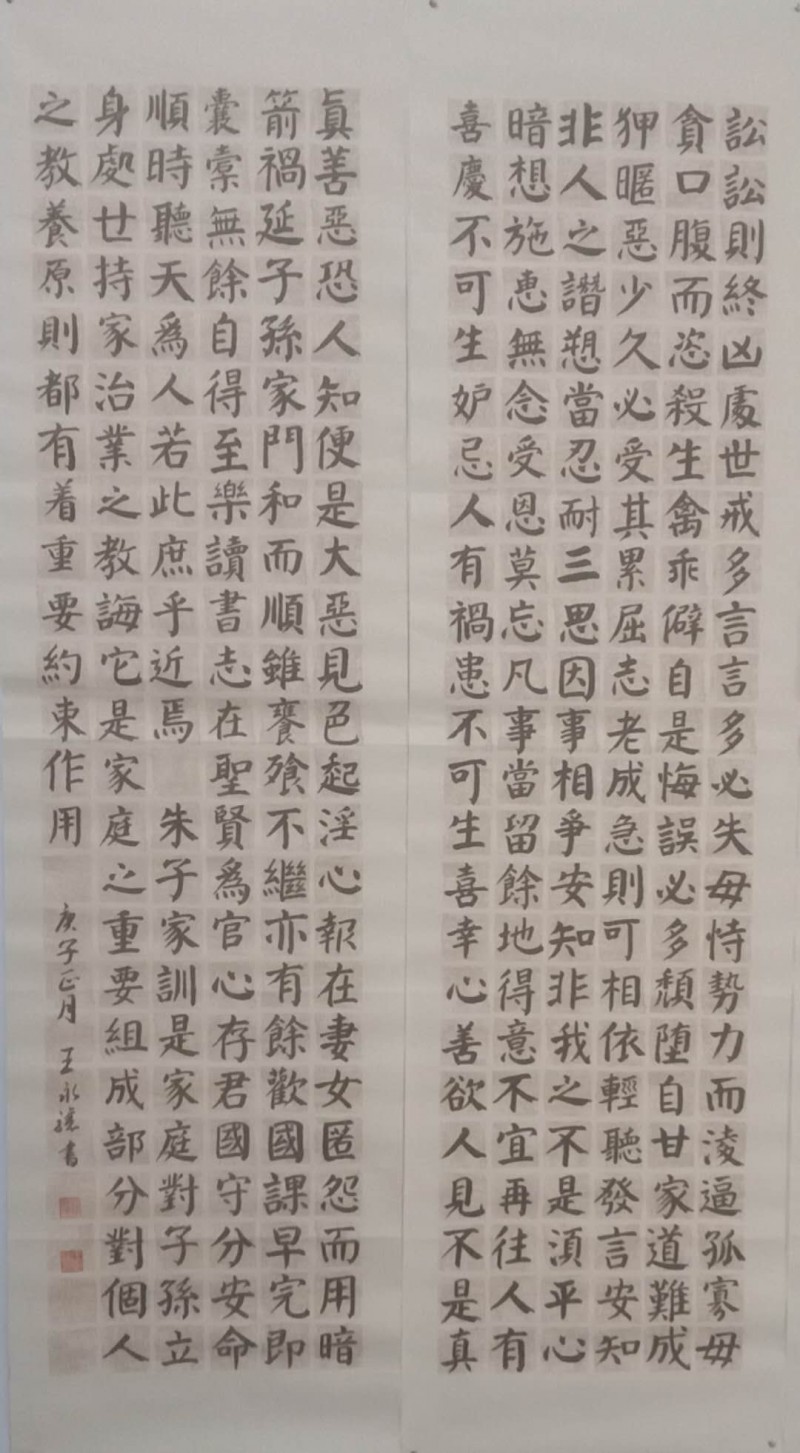 訟訟則終凶處世戒多言言多必失毋恃勢力而淩逼孤寡毋
貪口腹而恣殺生禽乖僻自是悔誤必多頹墮自甘家道難成
狎暱惡少久必受其累屈志老成急則可相依輕聽發言安知
非人之譖愬當忍耐三思因事相爭安知非我之不是須平心
暗想施惠無念受恩莫忘凡事當留餘地得意不宜再往人有
喜慶不可生妒忌人有禍患不可生喜幸心善欲人見不是真
眞善惡恐人知便是大惡見色起淫心報在妻女匿怨而用暗
箭禍延子孫家門和而順雖饔飧不繼亦有餘歡國課早完即
囊橐無餘自得至樂讀書志在聖賢爲官心存君國守分安命
順時聽天爲人若此庶乎近焉 朱子家訓是家庭對子孫立
身處世持家治業之教誨它是家庭之重要組成部分對個人
之教養原則都有着重要約束作用
庚子正月 王永書